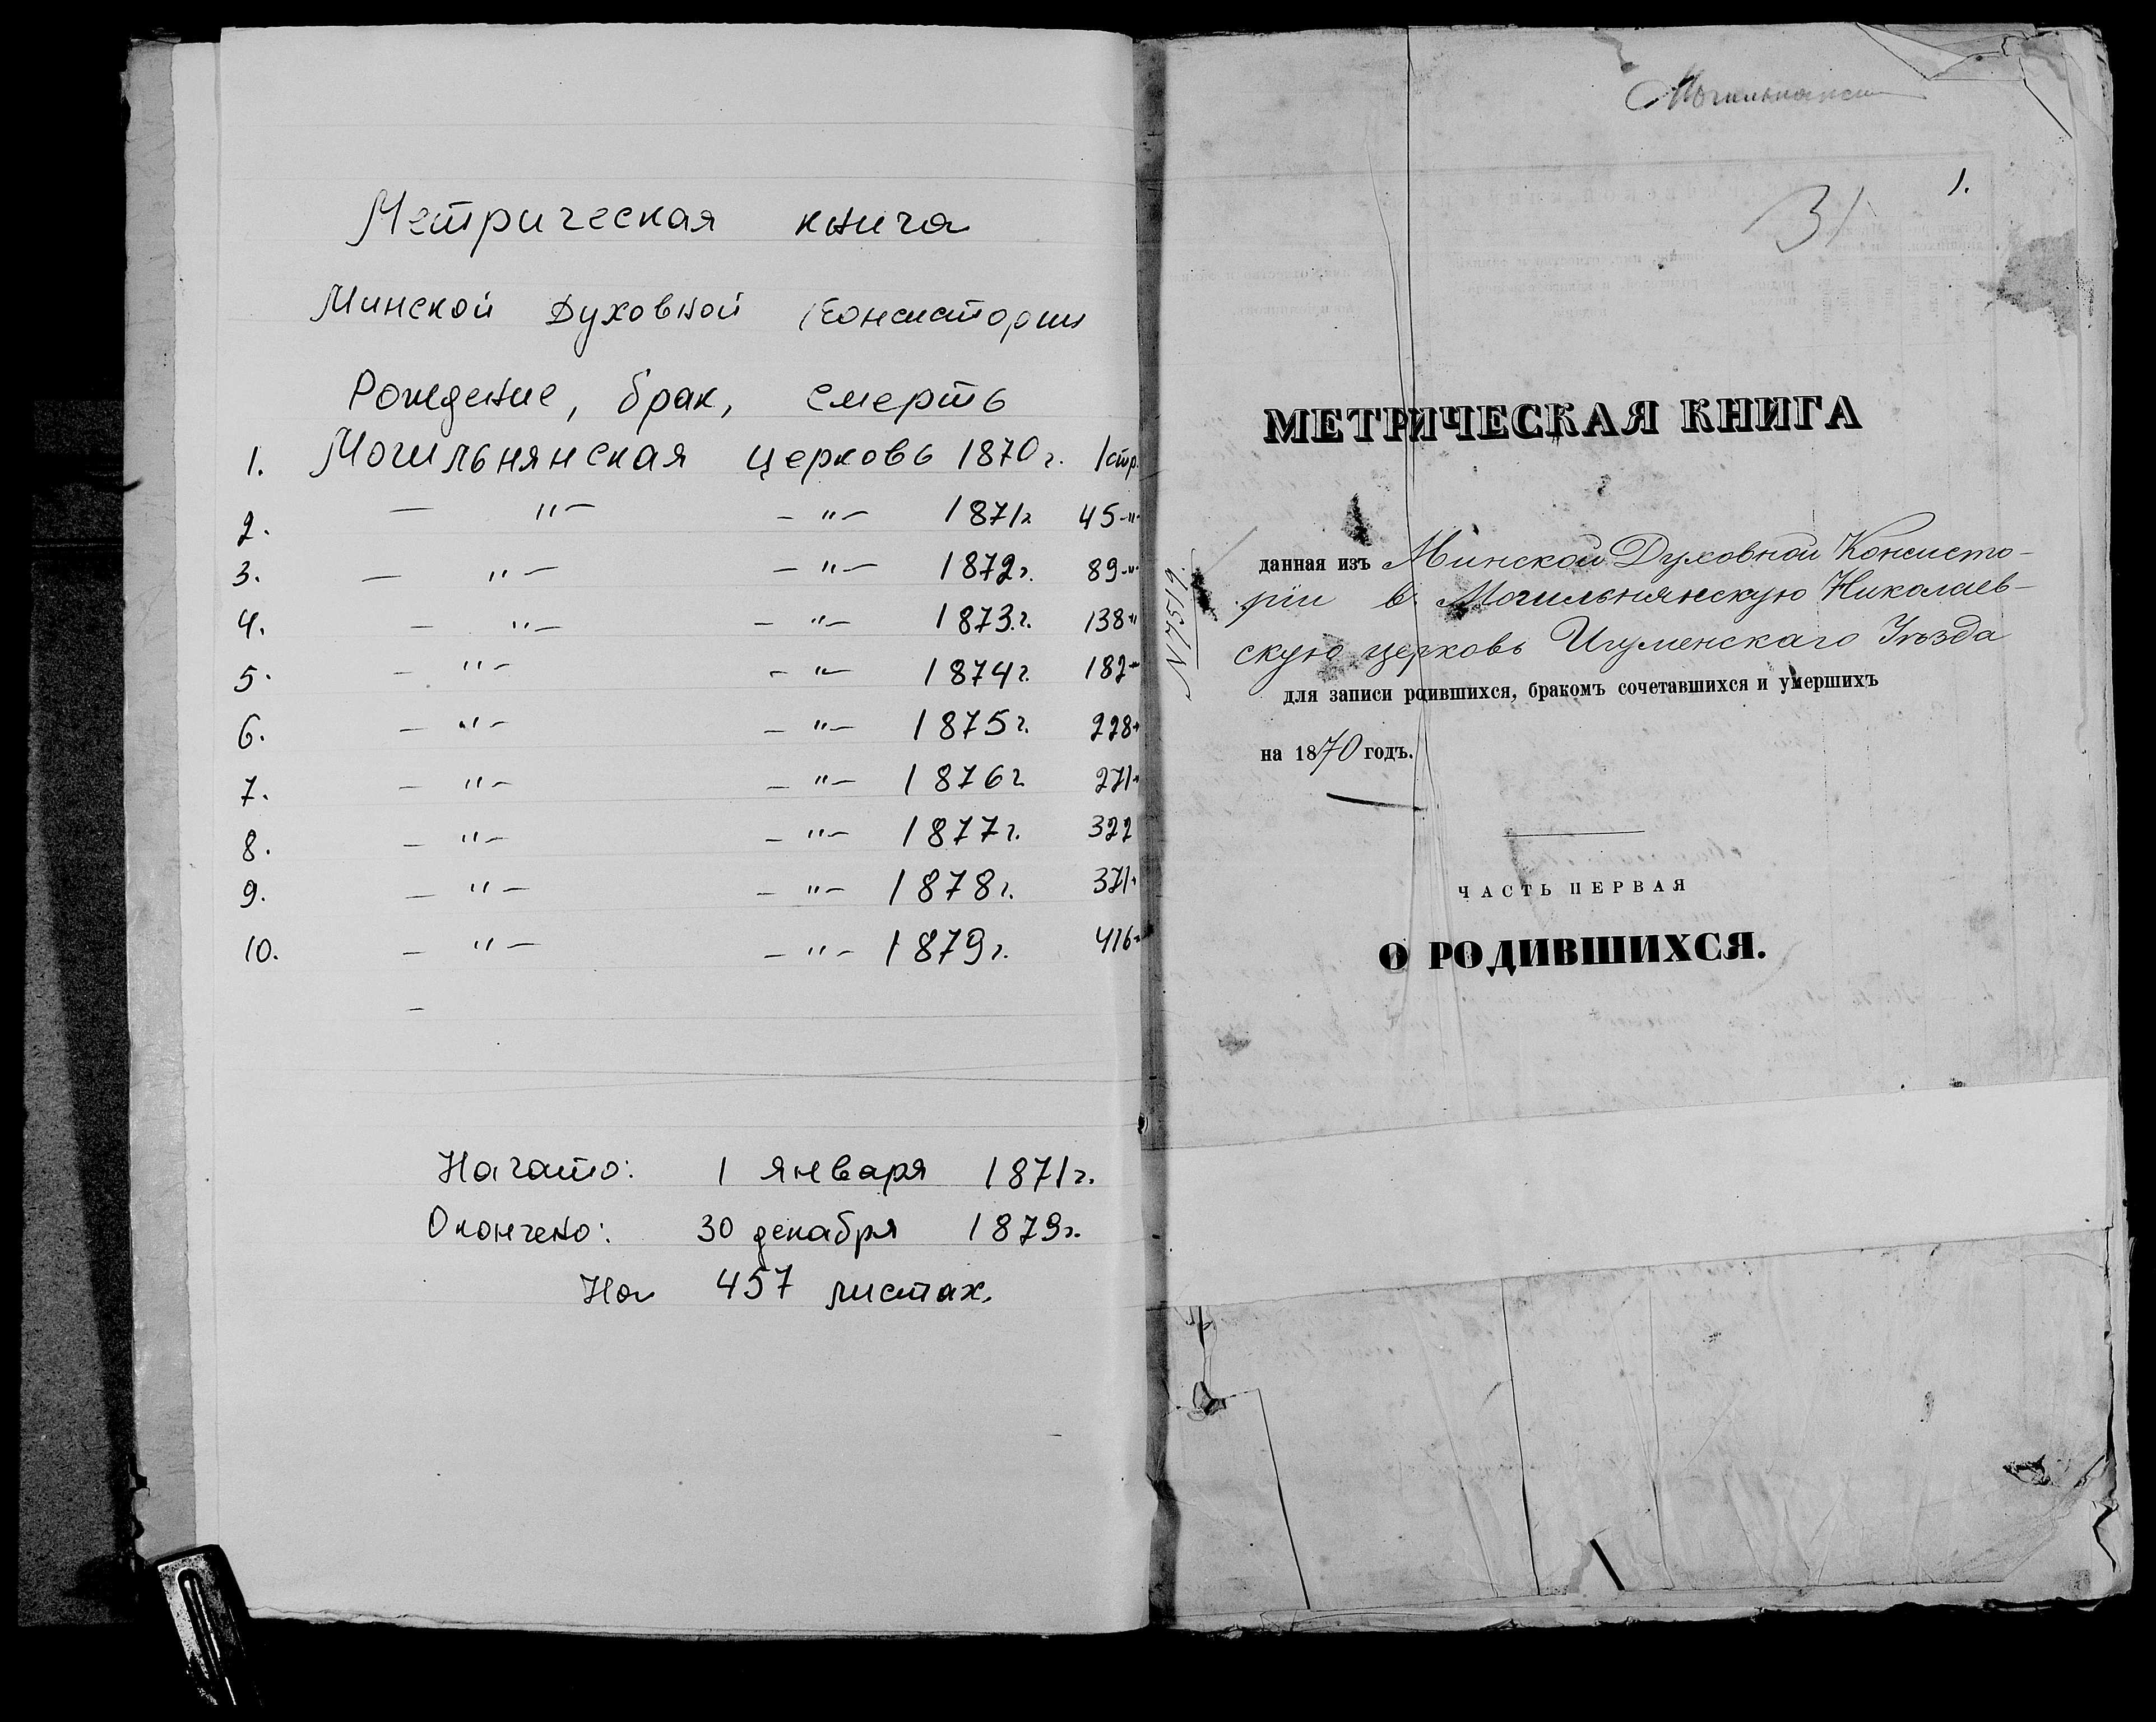 Метрическая книга
Минской Духовной Консистории
Рождение, брак, смерть
1. Могильнянская церковь 1870 г. 1 стр.
2. — " — — " — 1871 г. 45 - " -
3. — " — — " — 1872 г. 89 - " -
4. — " — — " — 1873 г. 138 "
5. — " — — " — 1874 г. 182 -
6. — " — — " — 1875 г. 228
7. — " — — " — 1876 г. 271
8. — " — — " — 1877 г. 322
9. — " — — " — 1878 г. 371
10. — " — — " — 1879 г. 416
–
Начато: 1 января 1871 г.
Окончено: 30 декабря 1879 г.
На 457 листах.
1.
31
МЕТРИЧЕСКАЯ КНИГА
N 7519.
данная изъ Минской Духовной Консисто-
ріи в. Могильнянскую Николаев-
скую церковь Игуменскаго Уѣзда
для записи родившихся, бракомъ сочетавшихся и умершихъ
на 1870 годъ.
ЧАСТЬ ПЕРВАЯ
О РОДИВШИХСЯ.